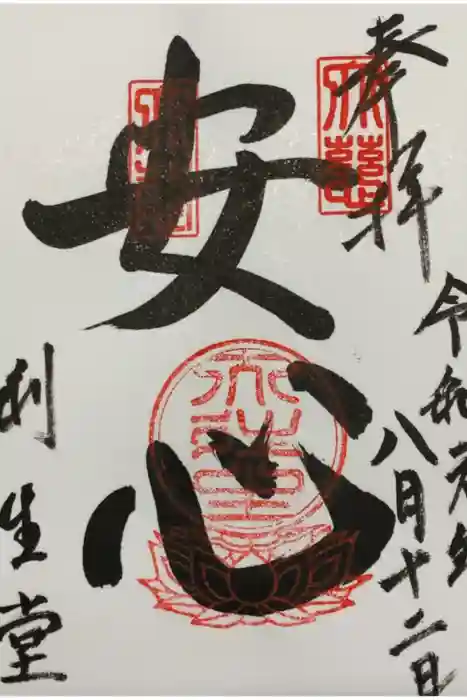 奉拝
令和元年
八月十二日
安心
利生堂